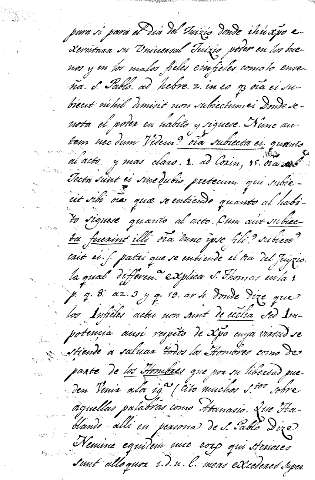 para si para el dia del Juizio donde ihũ xp̃o e
xercitara su Universal Juizio poder en los bue
nos y en los malos fieles e infieles como lo ense
ña S. Pablo. ad hebre. 2. in eo q. õia ei su
biecit nihil dimisit non subiectum ei donde se
nota el poder en habito y siguese. Nunc au
tem nec dum Videmus õia subiecta ei quanto
al acto, y mas claro 1. ad Corin. 15. õia
subiecta sunt ei sine dubio preter eum qui subie
cit sibi õia que se entiende quanto al habi
to siguese quanto al acto. Cum aũt subiec
ta fuerint illi õia tunc ipse filius subiectus
erit ei (patri que se entiende el dia del Juyzio
la qual differensia explica S. Thomas en la 3
p. q. 8. ar. 3 y q. 59. ar. 4 donde dize que
los Infieles actu non sunt de eccla sed in po
tencia assi respeto de Xpo cuya virtud se
estiende a salvar todos los Hombres como de
parte de los Hombres que por su libertad pue
den Venir a la igla (cito muchos stos sobre
aquellas palabras como Athanasio. Que Ha
blando alli en persona de S. Pablo Dize
Nemine equidem
sunt alloquor i. d. n. l. meas